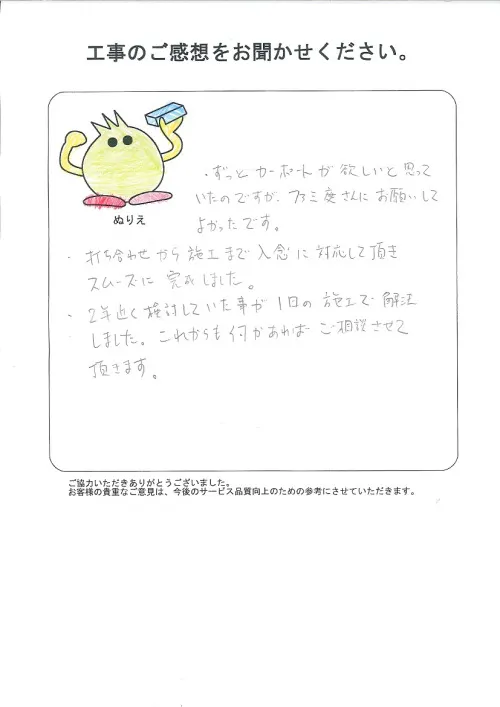 工事のご感想をお聞かせください。
・ずっと カーポートが 欲しいと思って
いたのですが、ファミ庭さんに お願いして
よかったです。
ぬりえ
・打ち合わせから 施工まで 入念に 対応して頂き
スムーズに 完成しました。
・2年近く検討していた事が 1日の 施工で 解決
しました。これからも何かあれば ご相談させて
頂きます。
ご協力いただきありがとうございました。
お客様の貴重なご意見は、今後のサービス品質向上のための参考にさせていただきます。